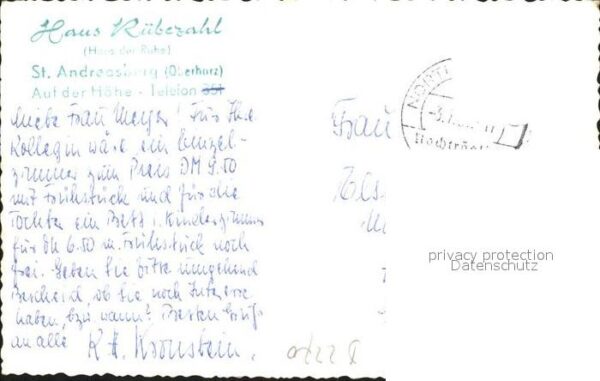 Haus Rübezahl
(Haus der Ruhe)
St. Andreasberg (Oberharz)
Auf der Höhe - Telefon 351
Liebe Frau Meyer! Für Ihre
Kollegin wäre ein Einzel-
zimmer zum Preis DM 9.50
mit Frühstück und für die
Tochter ein Bett i. Kinderzimmer
für DM 6.50 m. Frühstück noch
frei. Geben Sie bitte umgehend
Bescheid, ob Sie noch Interesse
haben, bzw. wann? Besten Gruß
an alle
K. H. Kronstein.
Frau
Nachträgl
privacy protection
Datenschutz